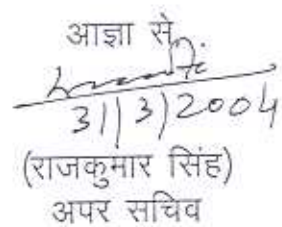 आज्ञा से
31|3|2004
(राजकुमार सिंह)
अपर सचिव